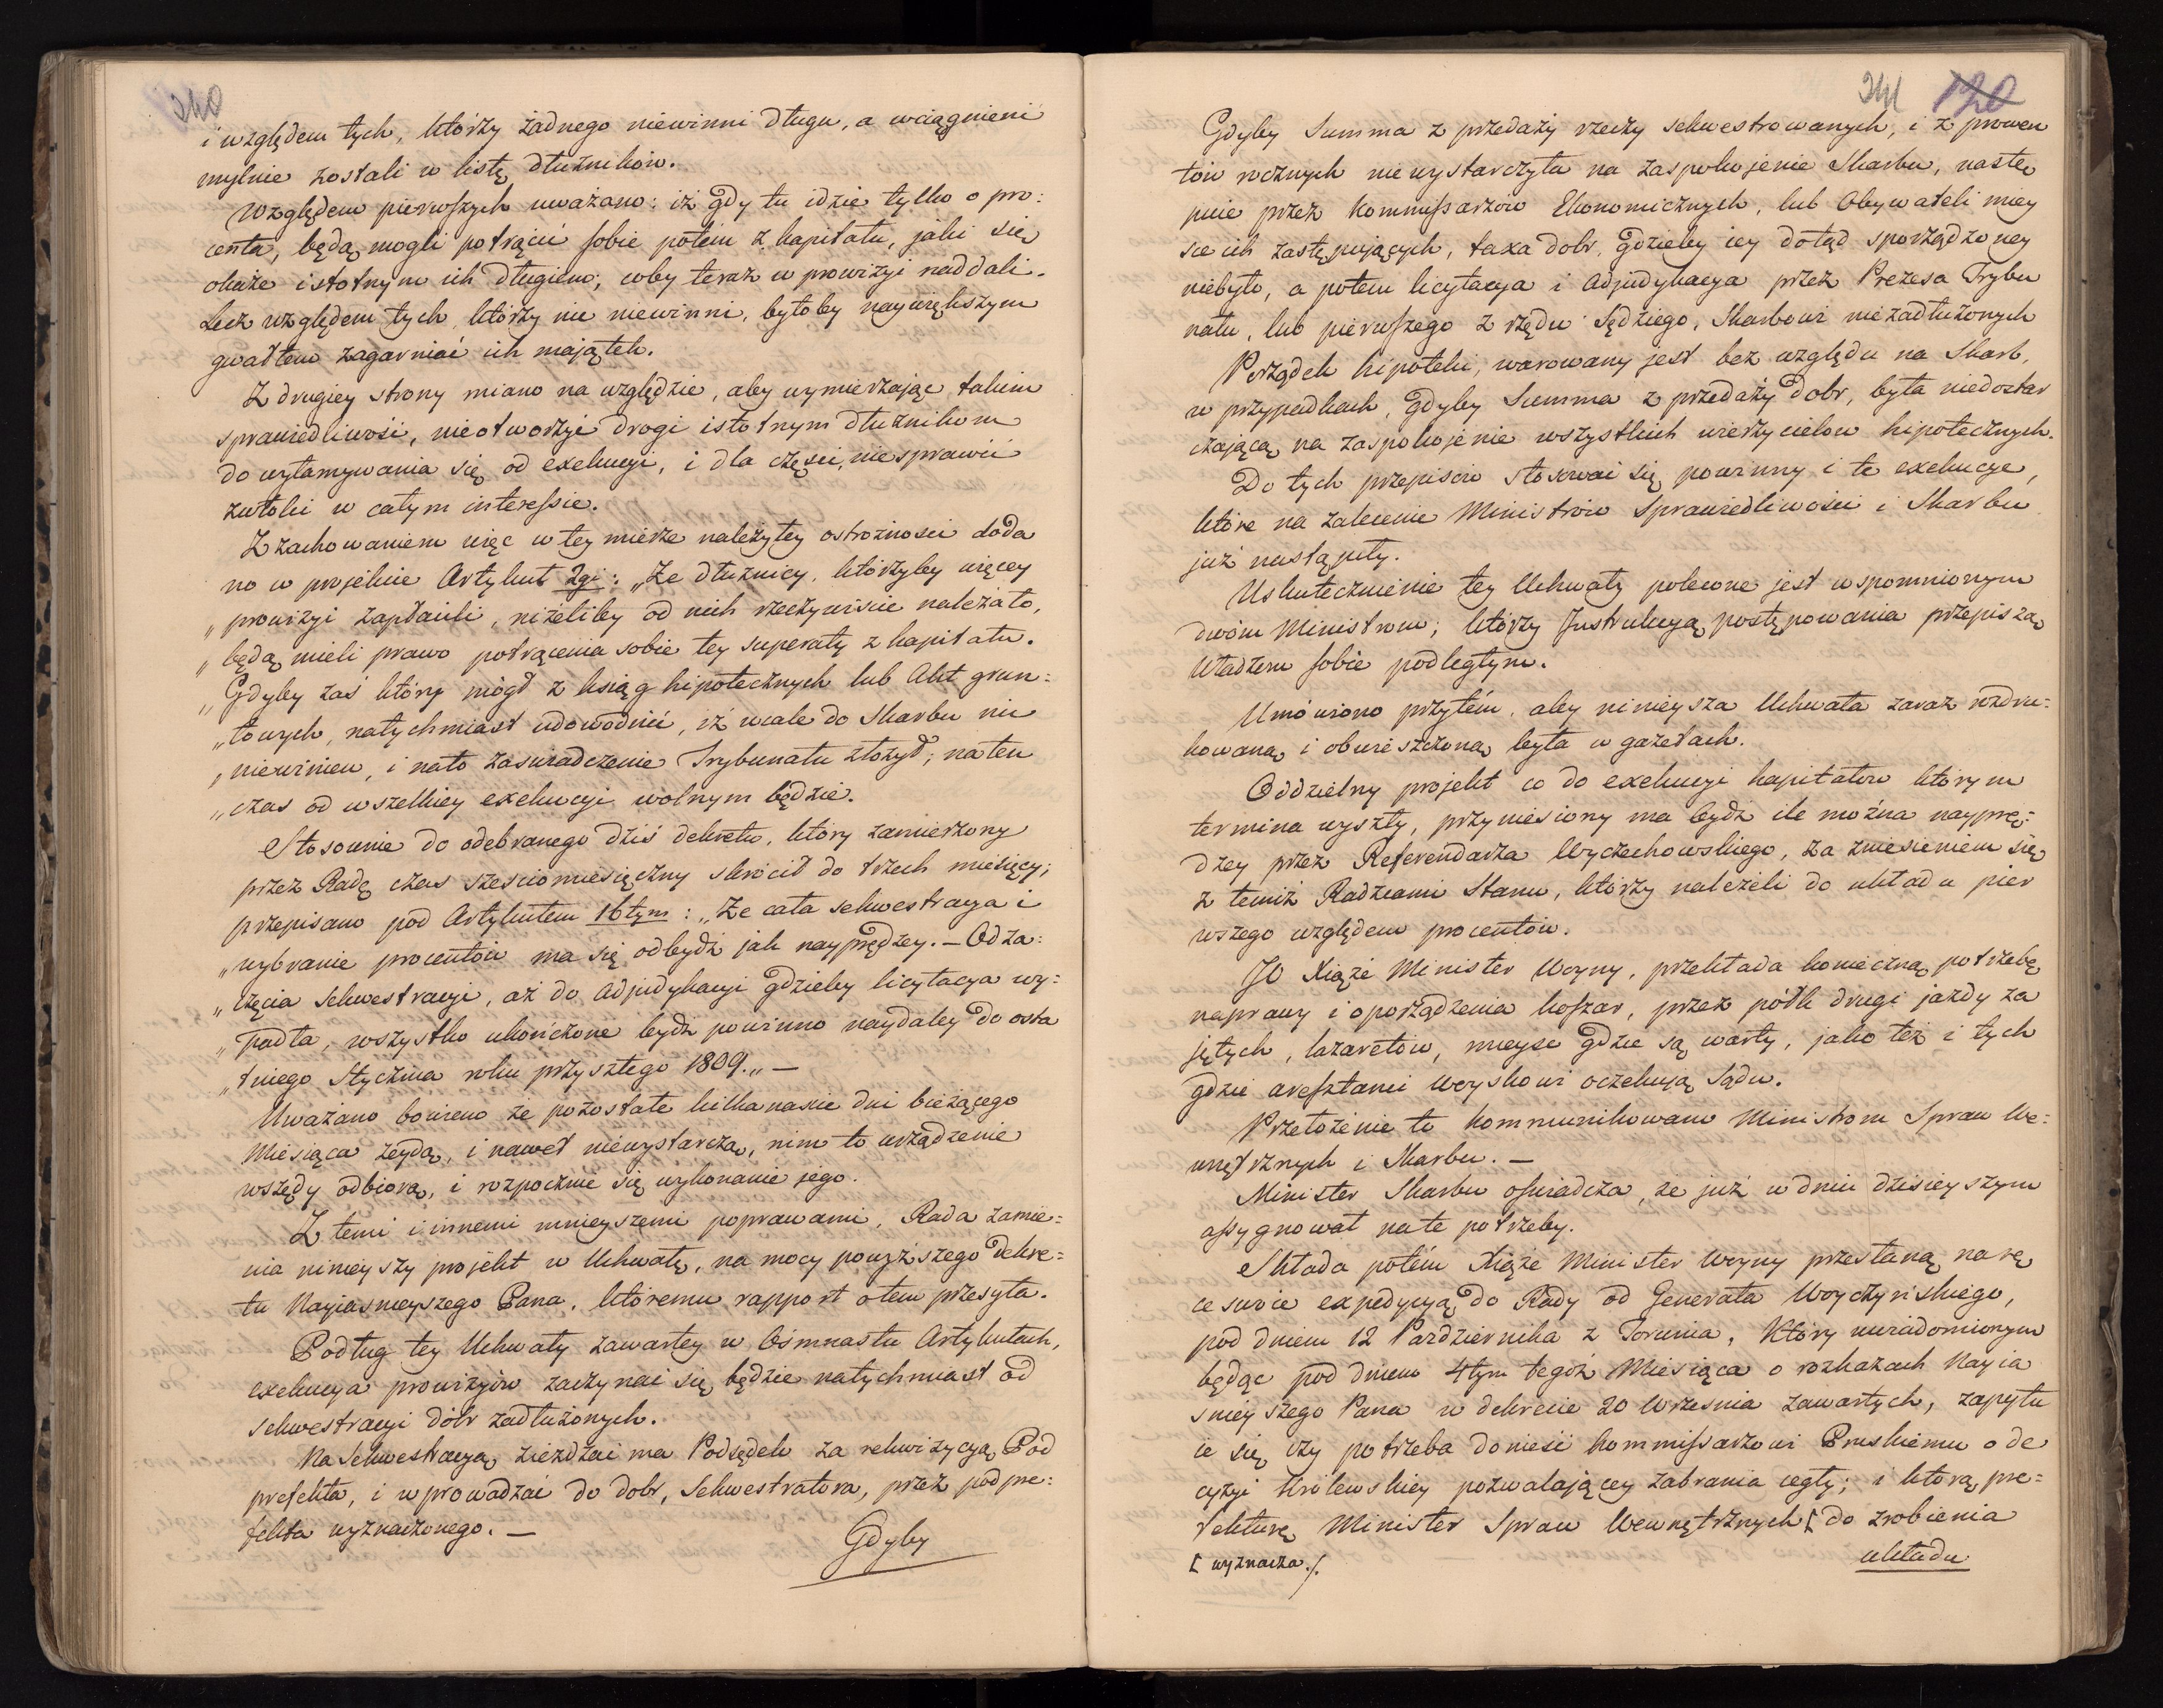 240
i względem tych, którzy żadnego niewinni długu, a wciągnieni
mylnie zostali w listę dłużników.
Względem pierwszych uważano: iż gdy tu idzie tylko o pro:
centa, będą mogli potrącić sobie potém z kapitału, jaki się
okaże istotnym ich długiem; coby teraz w prowizyi naddali.
Lecz względem tych, którzy nic niewinni, byłoby naywiększym
gwałtem zagarniać ich majątek.
Z drugiey strony miano na względzie, aby wymierzając takim
sprawiedliwość, nieotworzyć drogi istotnym dłużnikom
do wyłamywania się od exekucyi, i dla części, niesprawić
zwłoki w całym interessie.
Z zachowaniem więc w tey mierze należytey ostrożności doda
no w projekcie Artykuł 2gi: „Że dłużnicy, którzyby więcey
„prowizyi zapłacili, niżeliby od nich rzeczywiście należało,
„będą mieli prawo potrącenia sobie tey superaty z kapitału.
„Gdyby zaś który mógł z ksiąg hipotecznych lub Akt grun:
„towych, natychmiast udowodnić, iż wcale do Skarbu nic
„niewinien, i nato zaświadczenie Trybunału złożył; naten
„czas od wszelkiey exekucyi wolnym będzie.
Stosownie do odebranego dziś dekretu, który zamierzony
przez Radę czas sześciomiesięczny skrócił do trzech miesięcy;
przepisano pod Artykułem 16tym: „Że cała sekwestracya i
„wybranie procentów ma się odbydź jak nayprędzey. — Od za:
„częcia sekwestracyi, aż do Adjudykacyi gdzieby licytacya wy:
„padła, wszystko ukończone bydź powinno naydaley do osta
„tniego Stycznia roku przyszłego 1809.„ —
Uważano bowiem że pozostałe kilkanaście dni bieżącego
Miesiąca zeydą, i nawet niewystarczą, nim to urządzenie
wszędy odbiorą, i rozpocznie się wykonanie jego.
Z temi i innemi mnieyszemi poprawami, Rada zamie:
nia ninieyszy projekt w Uchwałę, na mocy powyższego dekre:
tu Nayiaśnieyszego Pana, któremu rapport otem przesyła.
Podług tey Uchwały zawartey w Ośmnastu Artykułach,
exekucya prowizyiów zaczynać się będzie natychmiast od
sekwestracyi dóbr zadłużonych.
Na Sekwestracyą zieżdżać ma Podsędek za rekwizycyą Pod
prefekta, i wprowadzać do dobr, Sekwestratora, przez podpre:
fekta wyznaczonego. —
Gdyby
241 120
Gdyby Summa z przedaży rzeczy sekwestrowanych, i z prowen
tów rocznych niewystarczyła na zaspokojenie Skarbu, nastę
puie przez Kommissarzów Ekonomicznych, lub Obywateli miey
sce ich zastępujących, taxa dobr, gdzieby iey dotąd sporządzoney
niebyło, a potem licytacya i Adjudykacya przez Prezesa Trybu
nału, lub pierwszego z rzędu Sędziego, Skarbowi niezadłużonych
Porządek hipoteki, warowany jest bez względu na Skarb,
w przypadkach, gdyby Summa z przedaży dobr, była niedostar
czającą na zaspokojenie wszystkich wierzycielow hipotecznych.
Do tych przepisów stosować się powinny i te exekucye,
które na zalecenie Ministrów Sprawiedliwości i Skarbu
już nastąpiły.
Uskutecznienie tey Uchwały polecone jest wspomnionym
dwóm Ministrom; którzy Instrukcyą postępowania przepiszą
Władzom sobie podległym.
Umówiono przytém, aby ninieysza Uchwała zaraz rozdru:
kowaną i obwieszczoną była w gazetach.
Oddzielny projekt co do exekucyi kapitałów którym
termina wyszły, przyniesiony ma bydź ile można nayprę:
dzey przez Referendarza Wyczechowskiego, za zniesieniem się
z temiż Radzcami Stanu, którzy należeli do układu pier
wszego względem procentów.
JO Xiąże Minister Woyny, przekłada konieczną potrzebę
naprawy i oporządzenia koszar, przez półk drugi jazdy za
jętych, lazaretów, mieysc gdzie są warty, jako też i tych
gdzie aresztanci woyskowi oczekują sądu.
Przełożenie to kommunikowano Ministrom Spraw We:
wnętrznych i Skarbu. —
Minister Skarbu oświadcza, że już w dniu dzisieyszym
assygnował na te potrzeby.
Składa potém Xiąże Minister Woyny przesłaną na rę
ce swoie expedycyą do Rady od Generała Woyczyńskiego,
pod dniem 12 Pazdziernika z Torunia, Który uwiadomionym
będąc pod dniem 4tym tegoż Miesiąca o rozkazach Nayia
śniey szego Pana w dekrecie 20 Września zawartych, zapytu
ie się czy potrzeba donieść Kommissarzowi Pruskiemu o de
cyzyi Królewskiey pozwalającey zabrania cegły; i którą pre:
fekturę Minister Spraw Wewnętrznych [ do zrobienia
[ wyznacza./.
układu